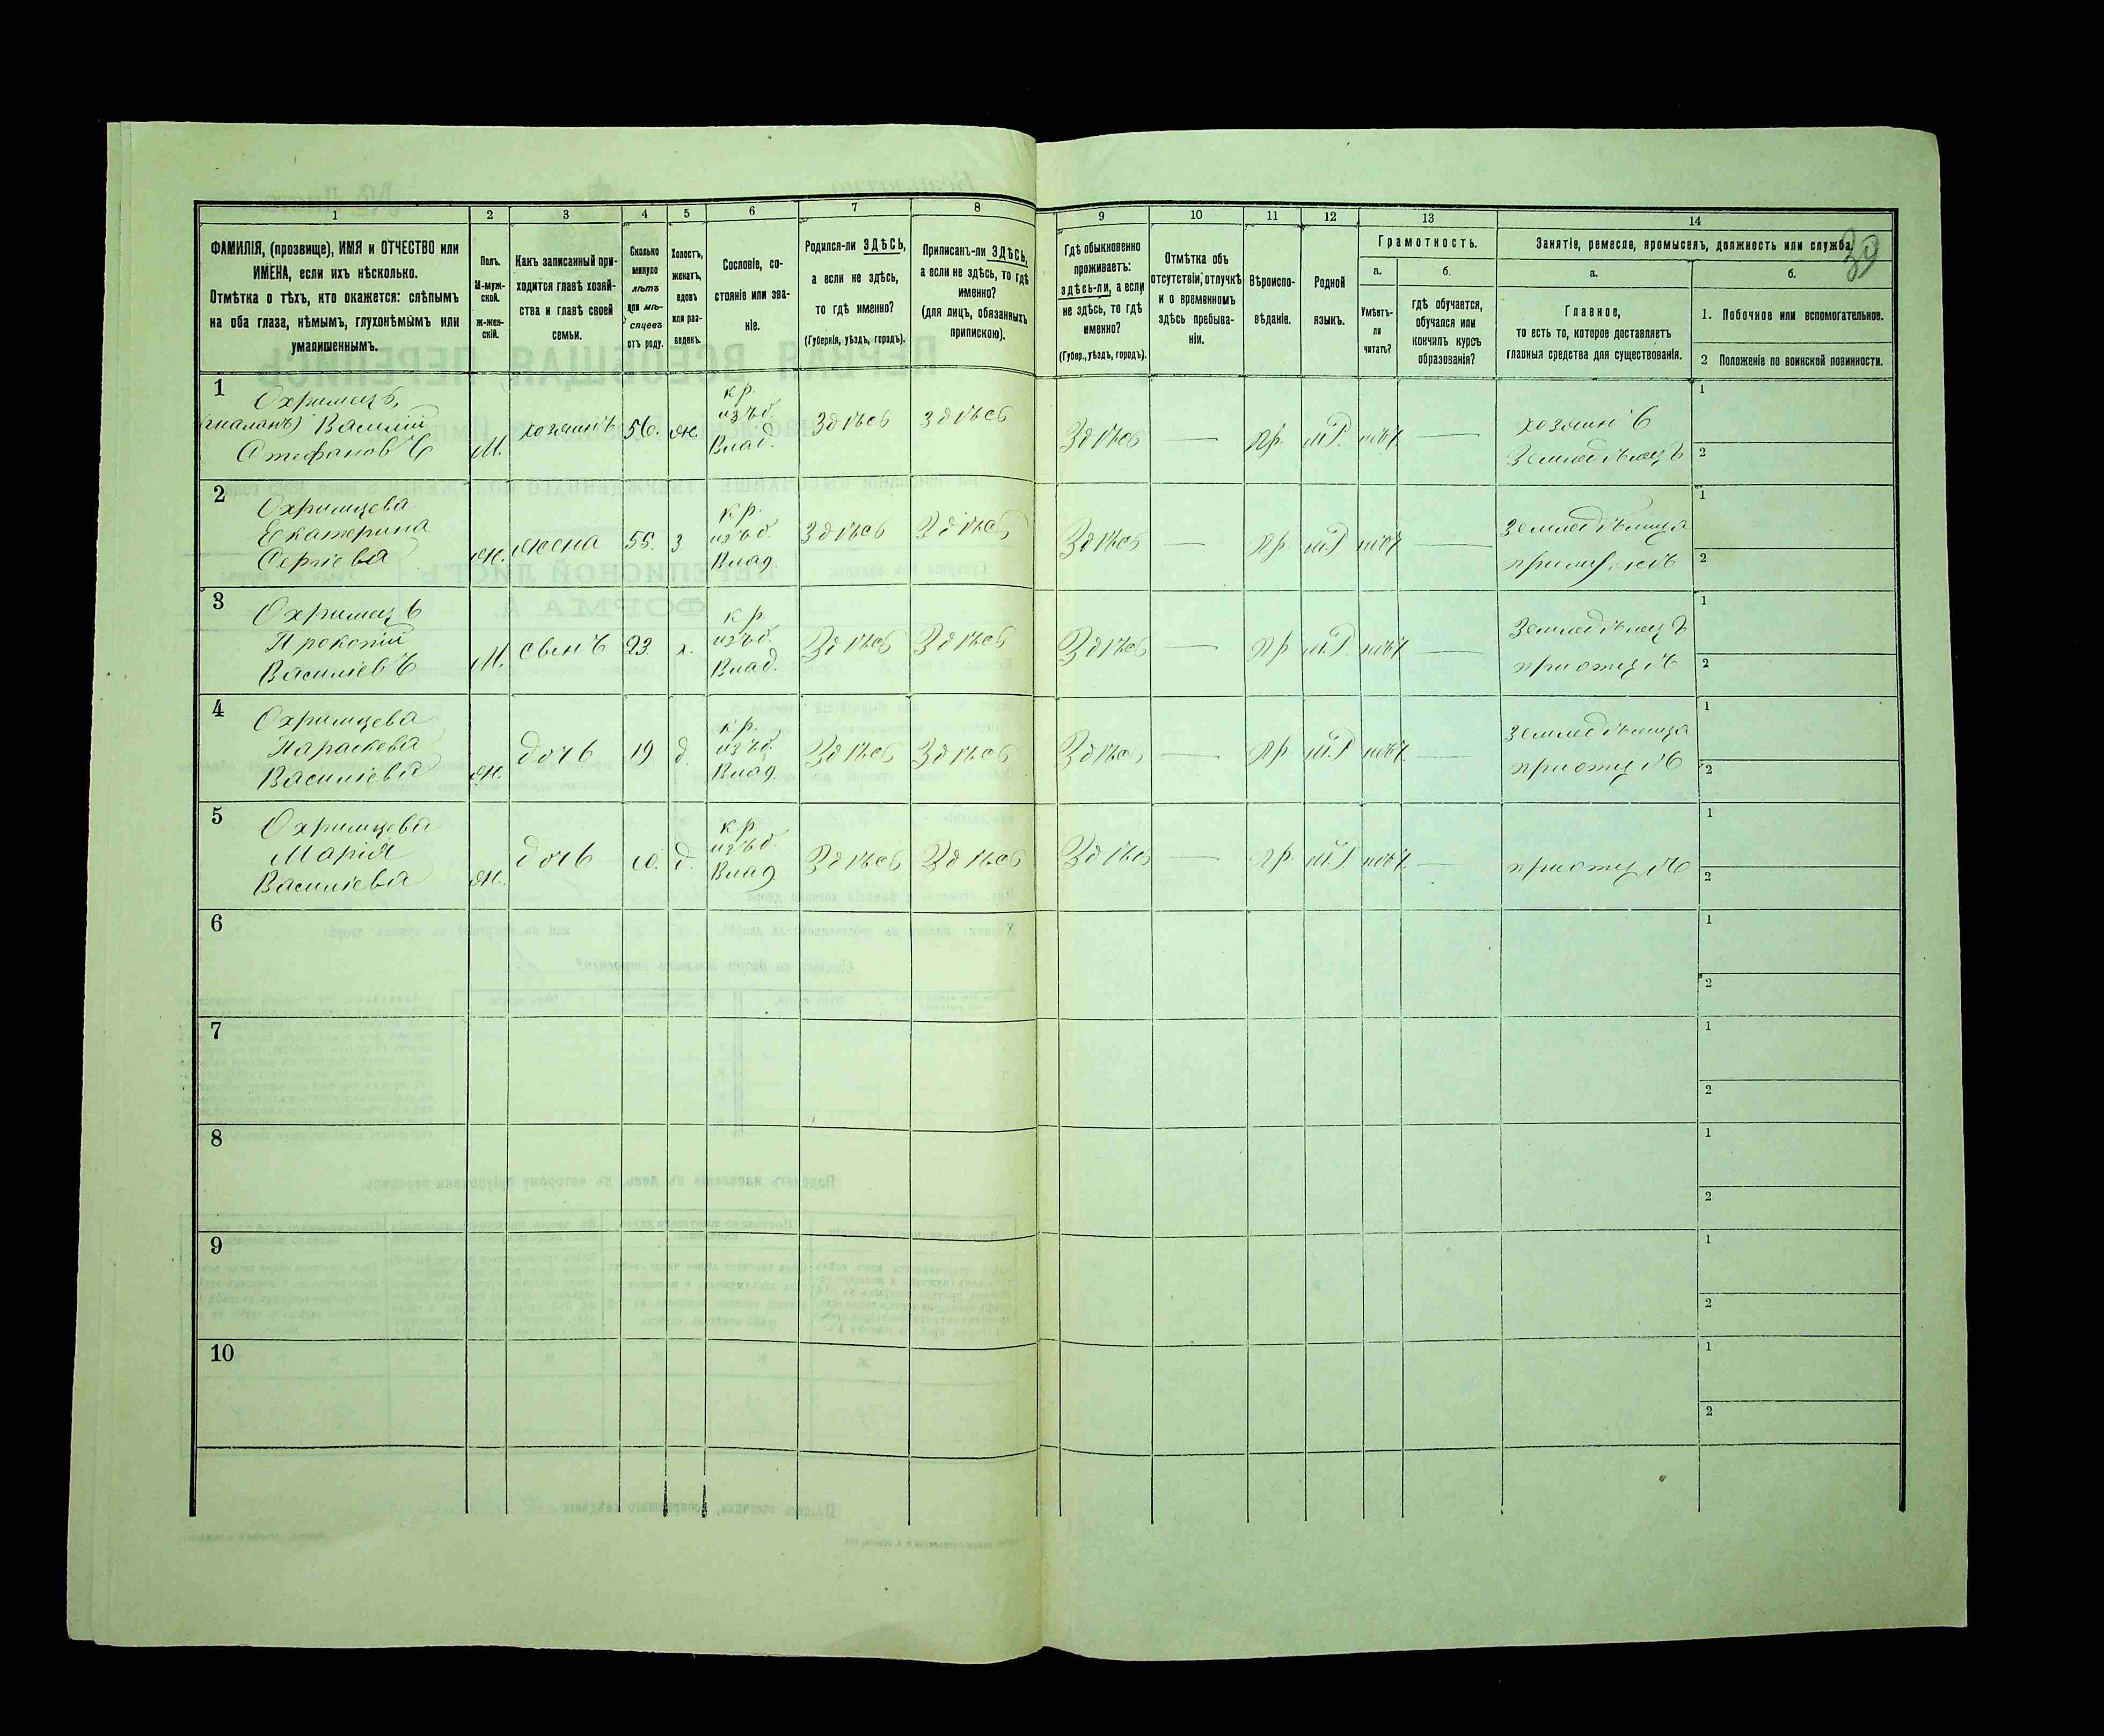 39
1 2 3 4 5 6 7 8 9 10 11 12 13 14
ФАМИЛІЯ, (прозвище), ИМЯ и ОТЧЕСТВО или
ИМЕНА, если ихъ нѣсколько.
Отмѣтка о тѣхъ, кто окажется: слѣпымъ
на оба глаза, нѣмымъ, глухонѣмымъ или
умалишеннымъ.
Полъ.
М-муж-
ской.
Ж-жен-
скій.
Какъ записанный при-
ходится главѣ хозяй-
ства и главѣ своей
семьи.
Сколько
минуло
лѣтъ
или мѣ-
сяцевъ
отъ роду.
Холостъ,
женатъ,
вдовъ
или раз-
веденъ.
Сословіе, со-
стояніе или зва-
ніе.
Родился-ли ЗДѢСЬ,
а если не здѣсь,
то гдѣ именно?
(Губернія, уѣздъ, городъ).
Приписанъ-ли ЗДѢСЬ,
а если не здѣсь, то гдѣ
именно?
(для лицъ, обязанныхъ
припискою).
Гдѣ обыкновенно
проживаетъ:
здѣсь-ли, а если
не здѣсь, то гдѣ
именно?
(Губер., уѣздъ, городъ).
Отмѣтка объ
отсутствіи, отлучкѣ
и о временномъ
здѣсь пребыва-
ніи.
Вѣроиспо-
вѣданіе.
Родной
языкъ.
Грамотность.
а.
Умѣетъ-
ли
читать?
б.
гдѣ обучается,
обучался или
кончилъ курсъ
образованія?
Занятіе, ремесло, промыселъ, должность или служба.
а.
Главное,
то есть то, которое доставляетъ
главныя средства для существованія.
б.
1. Побочное или вспомогательное.
2 Положеніе по воинской повинности.
1
Охримецъ
Василій
Стефановъ
М.
хозяинъ
56.
ж.
кр.
изъ б.
Влад.
Здѣсь
здѣсь
Здѣсь
—
пр.
м.Р.
нѣт
—
хозяинъ
Земледѣлецъ
1
2
2
Охримцева
Екатерина
Сергіева
ж.
жена
55.
з
кр.
изъ б.
Влад.
Здѣсь
Здѣсь
Здѣсь
—
пр
м.Р
нѣт
—
Земледѣлица
при муж.
1
2
3
Охримецъ
Прокопій
Василіевъ
М.
сынъ
23.
х.
кр.
изъ б.
Влад.
Здѣсь
Здѣсь
Здѣсь
—
пр
м.Р.
нѣт
—
Земледѣлецъ
при отцѣ
1
2
4
Охримцева
Параскева
Василіева
ж.
дочь
19
д.
кр.
изъ б.
Влад.
Здѣсь
Здѣсь
Здѣсь
—
пр
м.Р
нѣт
—
Земледѣлица
при отцѣ
1
2
5
Охримцева
Марія
Василіева
ж.
дочь
10.
д.
кр
изъ б.
Влад
Здѣсь
Здѣсь
Здѣсь
—
пр.
м.Р
нѣт
—
при отцѣ
1
2
6
1
2
7
1
2
8
1
2
9
1
2
10
1
2